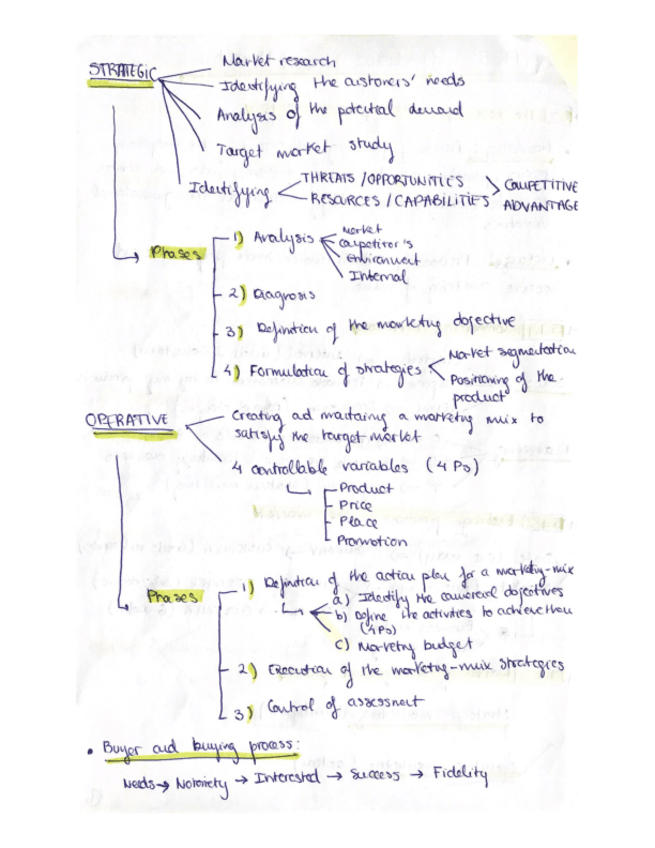 STRATEGIC
Market research
Identifying the customers' needs
Analysis of the potential demand
Target market study
Identifying
THREATS / OPPORTUNITIES
RESOURCES / CAPABILITIES
COMPETITIVE
ADVANTAGE
Phases
1) Analysis
Market
Competitor's
Environment
Internal
2) Diagnosis
3) Definition of the marketing objective
4) Formulation of strategies
Market segmentation
Positioning of the
product
OPERATIVE
Creating and maintaining a marketing mix to
satisfy the target market
4 controllable variables (4 Ps)
Product
Price
Place
Promotion
Phases
1) Definition of the action plan for a marketing-mix
a) Identify the commercial objectives
b) Define the activities to achieve them
(4Ps)
c) Marketing budget
2) Execution of the marketing-mix strategies
3) Control of assessment
• Buyer and buying process:
Needs → Notoriety → Interested → Success → Fidelity